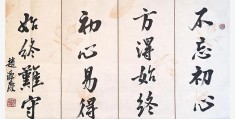 不忘初心
方得始终
初心易得
始终難守